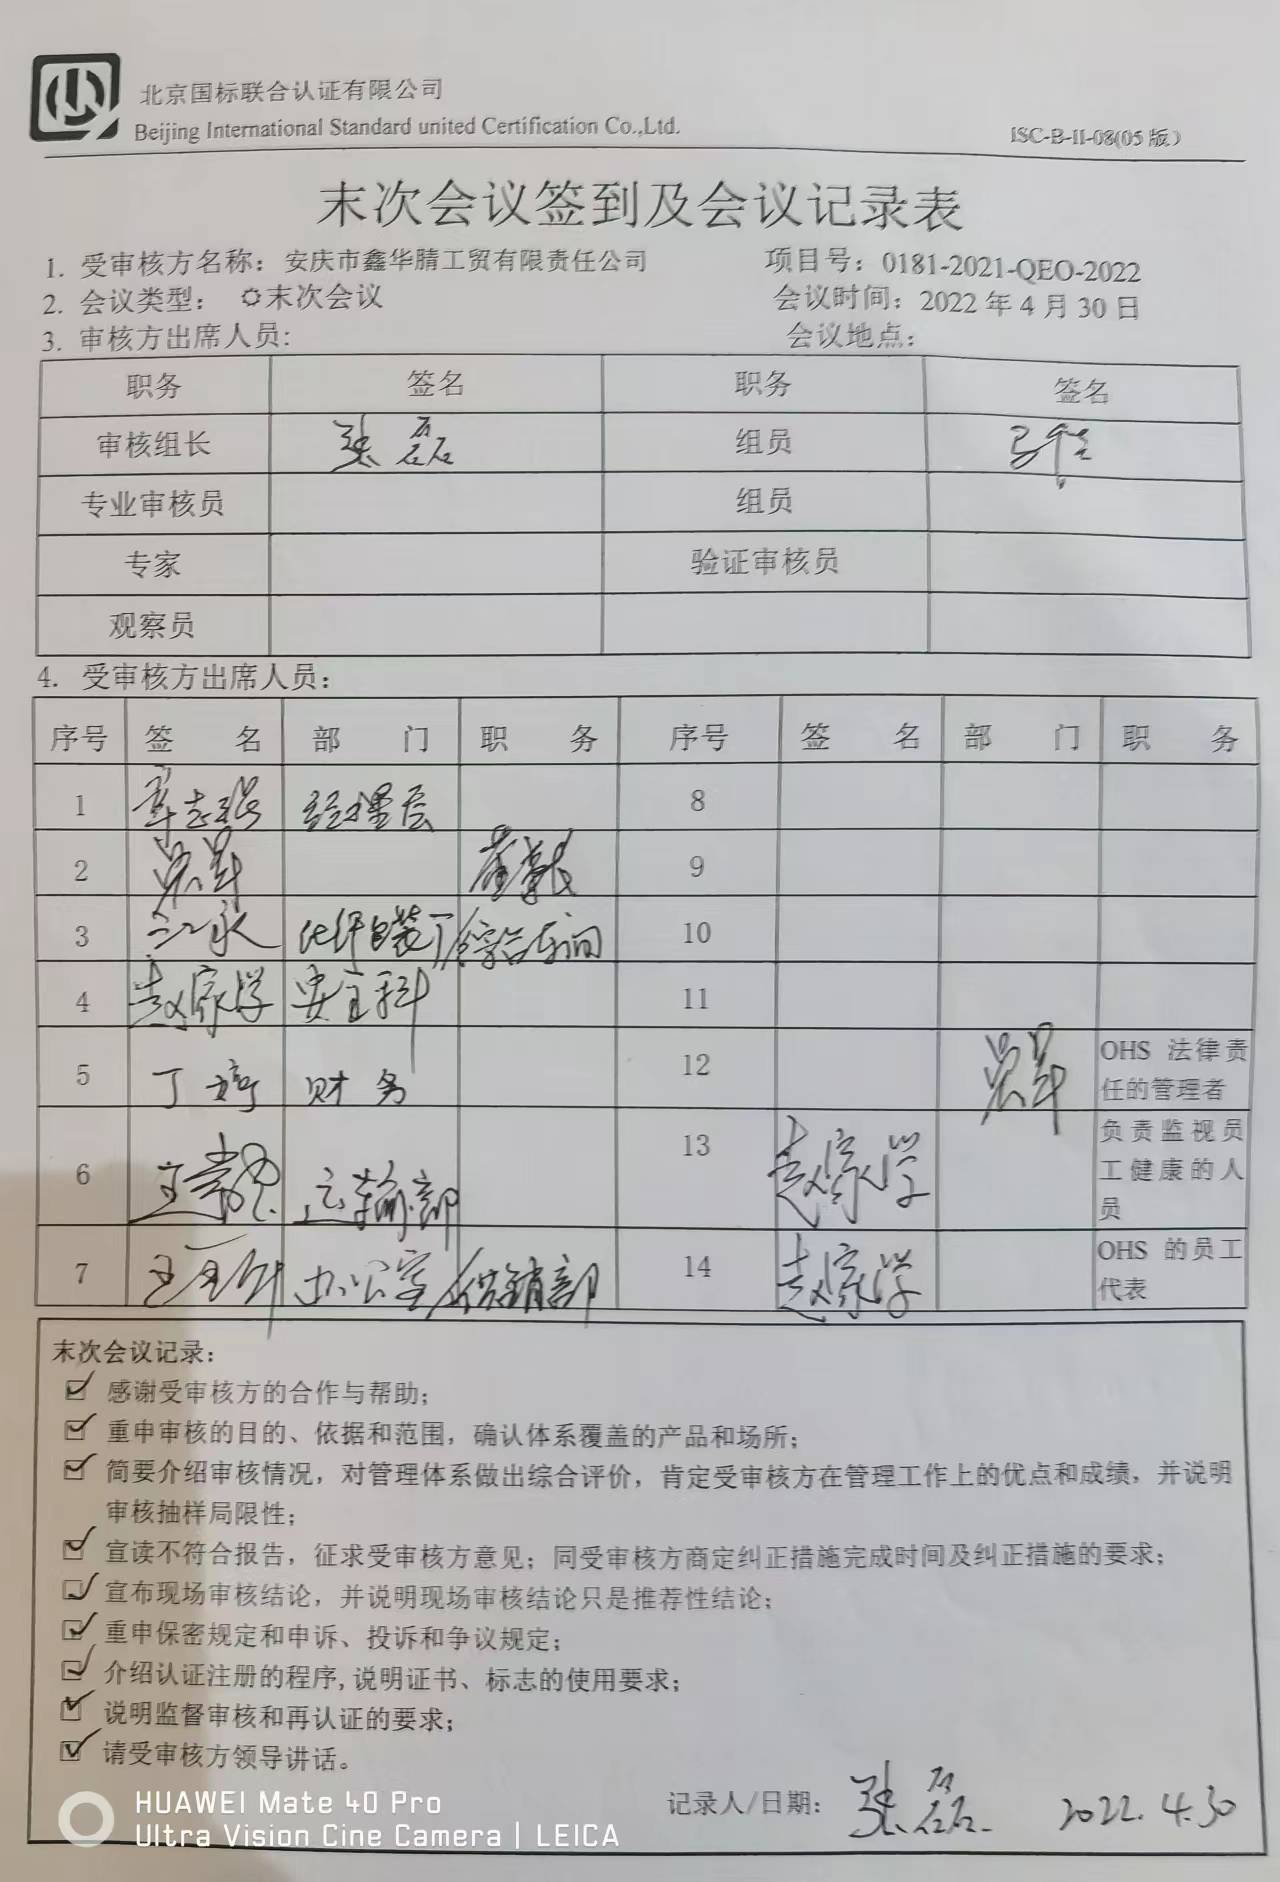 北京国标联合认证有限公司
Beijing International Standard united Certification Co.,Ltd.
ISC-B-II-08(05 版)
末次会议签到及会议记录表
1. 受审核方名称：安庆市鑫华腈工贸有限责任公司 项目号：0181-2021-QEO-2022
2. 会议类型： 末次会议 会议时间：2022 年 4 月 30 日
3. 审核方出席人员： 会议地点：
职务 签名 职务 签名
审核组长 张磊 组员
专业审核员 组员
专家 验证审核员
观察员
4. 受审核方出席人员：
序号 签 名 部 门 职 务 序号 签 名 部 门 职 务
1 经理层 8
2 9
3 江永 化纤包装厂 综合车间 10
4 赵家学 安全科 11
5 丁婷 财务 12 OHS 法律责
任的管理者
6 运输部 13 赵家学 负责监视员
工健康的人
员
7 办公室 供销部 14 赵家学 OHS 的员工
代表
末次会议记录：
感谢受审核方的合作与帮助；
重申审核的目的、依据和范围，确认体系覆盖的产品和场所；
简要介绍审核情况，对管理体系做出综合评价，肯定受审核方在管理工作上的优点和成绩，并说明
审核抽样局限性；
宣读不符合报告，征求受审核方意见；同受审核方商定纠正措施完成时间及纠正措施的要求；
宣布现场审核结论，并说明现场审核结论只是推荐性结论；
重申保密规定和申诉、投诉和争议规定；
介绍认证注册的程序,说明证书、标志的使用要求；
说明监督审核和再认证的要求；
请受审核方领导讲话。
记录人/日期： 张磊 2022.4.30
HUAWEI Mate 40 Pro
Ultra Vision Cine Camera | LEICA